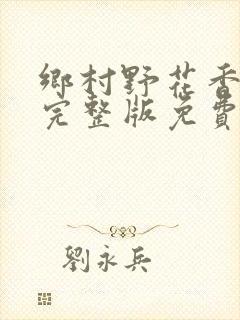 鄉村野花香
完整版免費
劉永兵